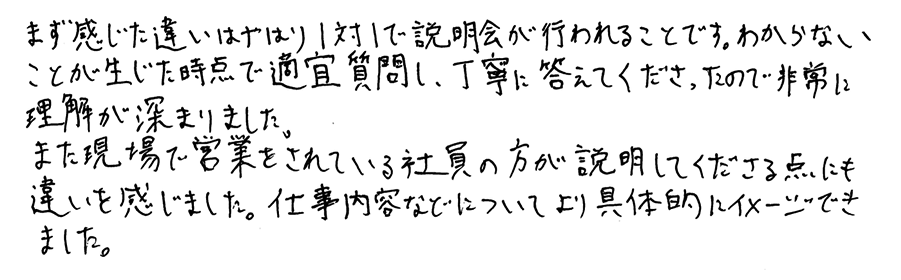 まず感じた違いはやはり1対1で説明会が行われることです。わからない
ことが生じた時点で適宜質問し、丁寧に答えてくださったので非常に
理解が深まりました。
また現場で営業をされている社員の方が説明してくださる点にも
違いを感じました。仕事内容などについてより具体的にイメージでき
ました。